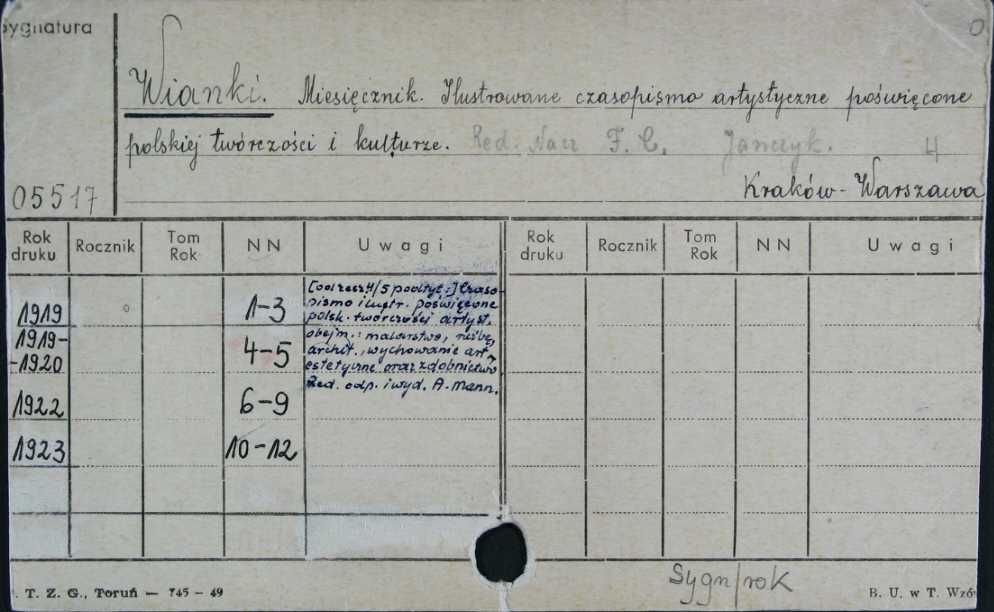 Sygnatura
Wianki. Miesięcznik. Ilustrowane czasopismo artystyczne poświęcone
polskiej twórczości i kulturze. Red. Nacz F. C. Janczyk. 4
05517
Kraków - Warszawa
Rok druku Rocznik Tom Rok NN Uwagi Rok druku Rocznik Tom Rok NN Uwagi
1919 1-3
1919-
-1920 4-5
1922 6-9
1923 10-12
[od zesz 4/5 podtyt.:] Czaso-
pismo ilustr. poświęcone
polsk. twórczości artyst.
obejm.: malarstwo, rzeźbę,
archit., wychowanie art.
estetyczne oraz zdobnictwo
Red. odp. i wyd. A. Mann.
Sygn/rok
. T. Z. G., Toruń — 745 - 49
B. U. w T. Wzó